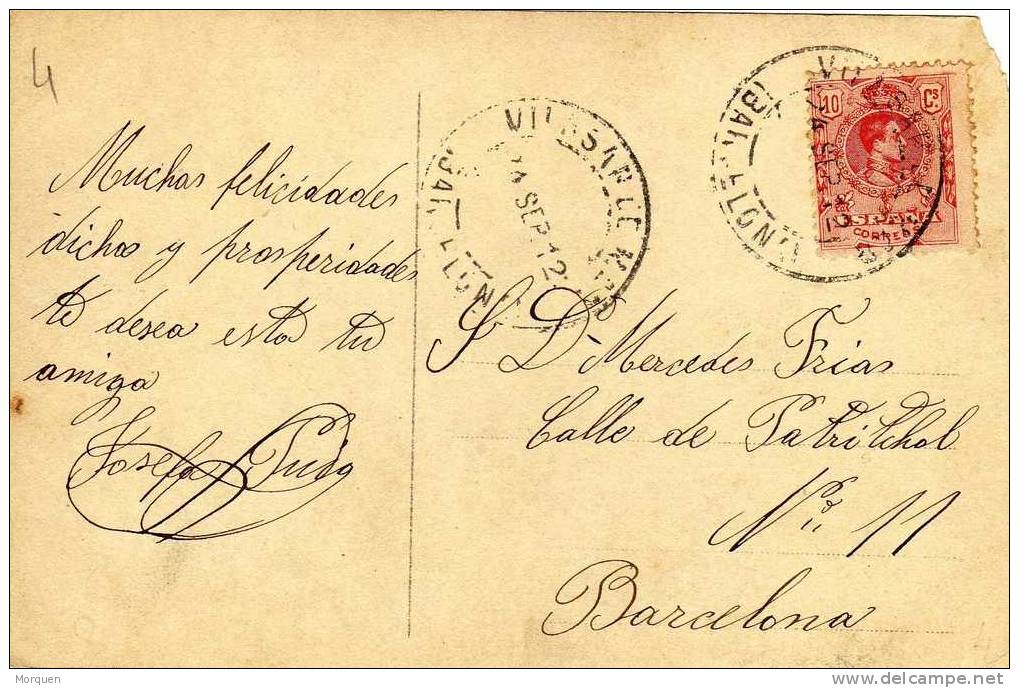 4
Muchas felicidades
dichas y prosperidades
te desea esta tu
amiga
Josefa Puig
VILASAR DE MAR
24 SEP 12
(BARCELONA)
10 Cs
ESPAÑA
CORREOS
VILASAR
24 SEP 12
(BARCELONA)
S. Dª Mercedes Frias
Calle de Patritchol
Nº 11
Barcelona
Morquen
delcampe.net